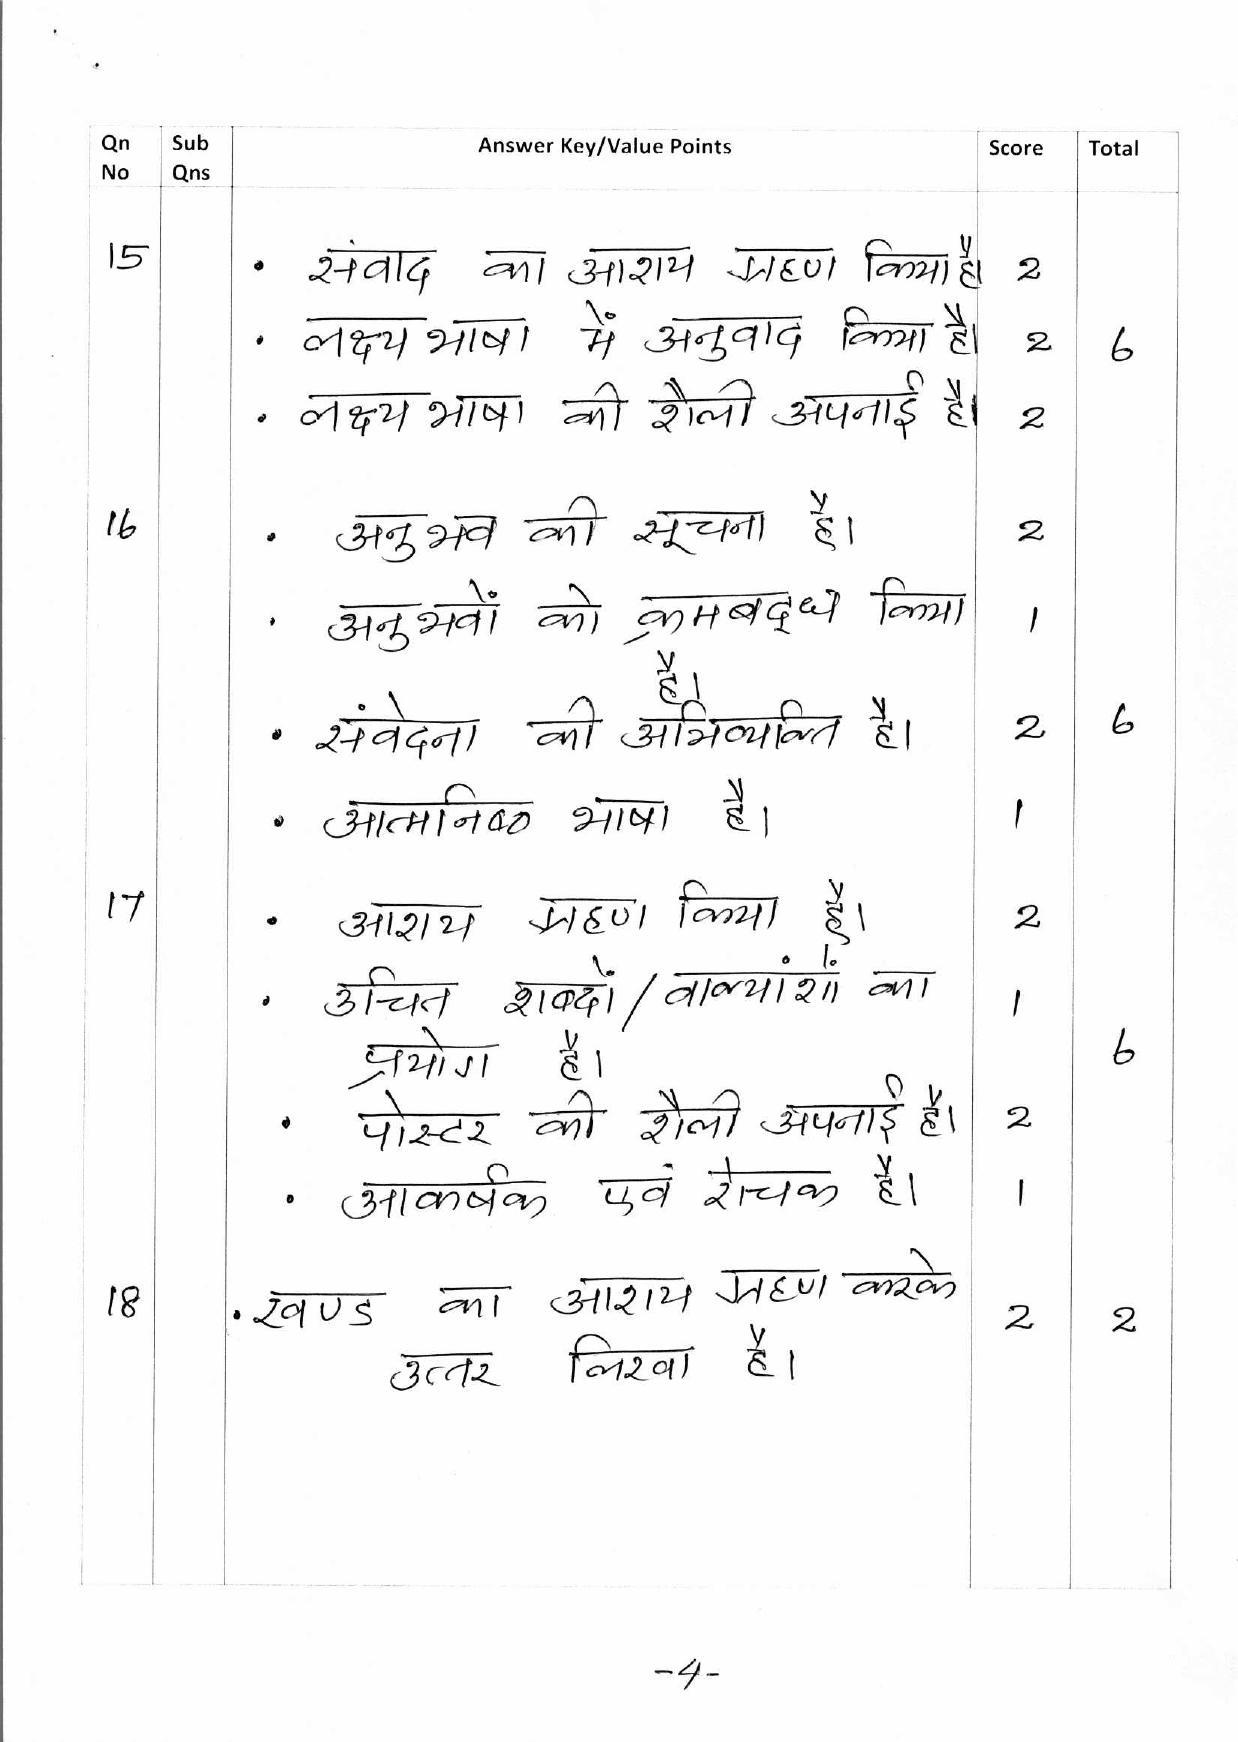 Qn No Sub Qns Answer Key/Value Points Score Total
15 • संवाद का आशय ग्रहण किया है। 2
• लक्ष्य भाषा में अनुवाद किया है। 2 6
• लक्ष्य भाषा की शैली अपनाई है। 2
16 • अनुभव की सूचना है। 2
• अनुभवों को क्रमबद्ध किया 1
है।
• संवेदना की अभिव्यक्ति है। 2 6
• आत्मनिष्ठ भाषा है। 1
17 • आशय ग्रहण किया है। 2
• उचित शब्दों / वाक्यांशों का 1
प्रयोग है। 6
• पोस्टर की शैली अपनाई है। 2
• आकर्षक एवं रोचक है। 1
18 • खण्ड का आशय ग्रहण करके 2 2
उत्तर लिखा है।
-4-